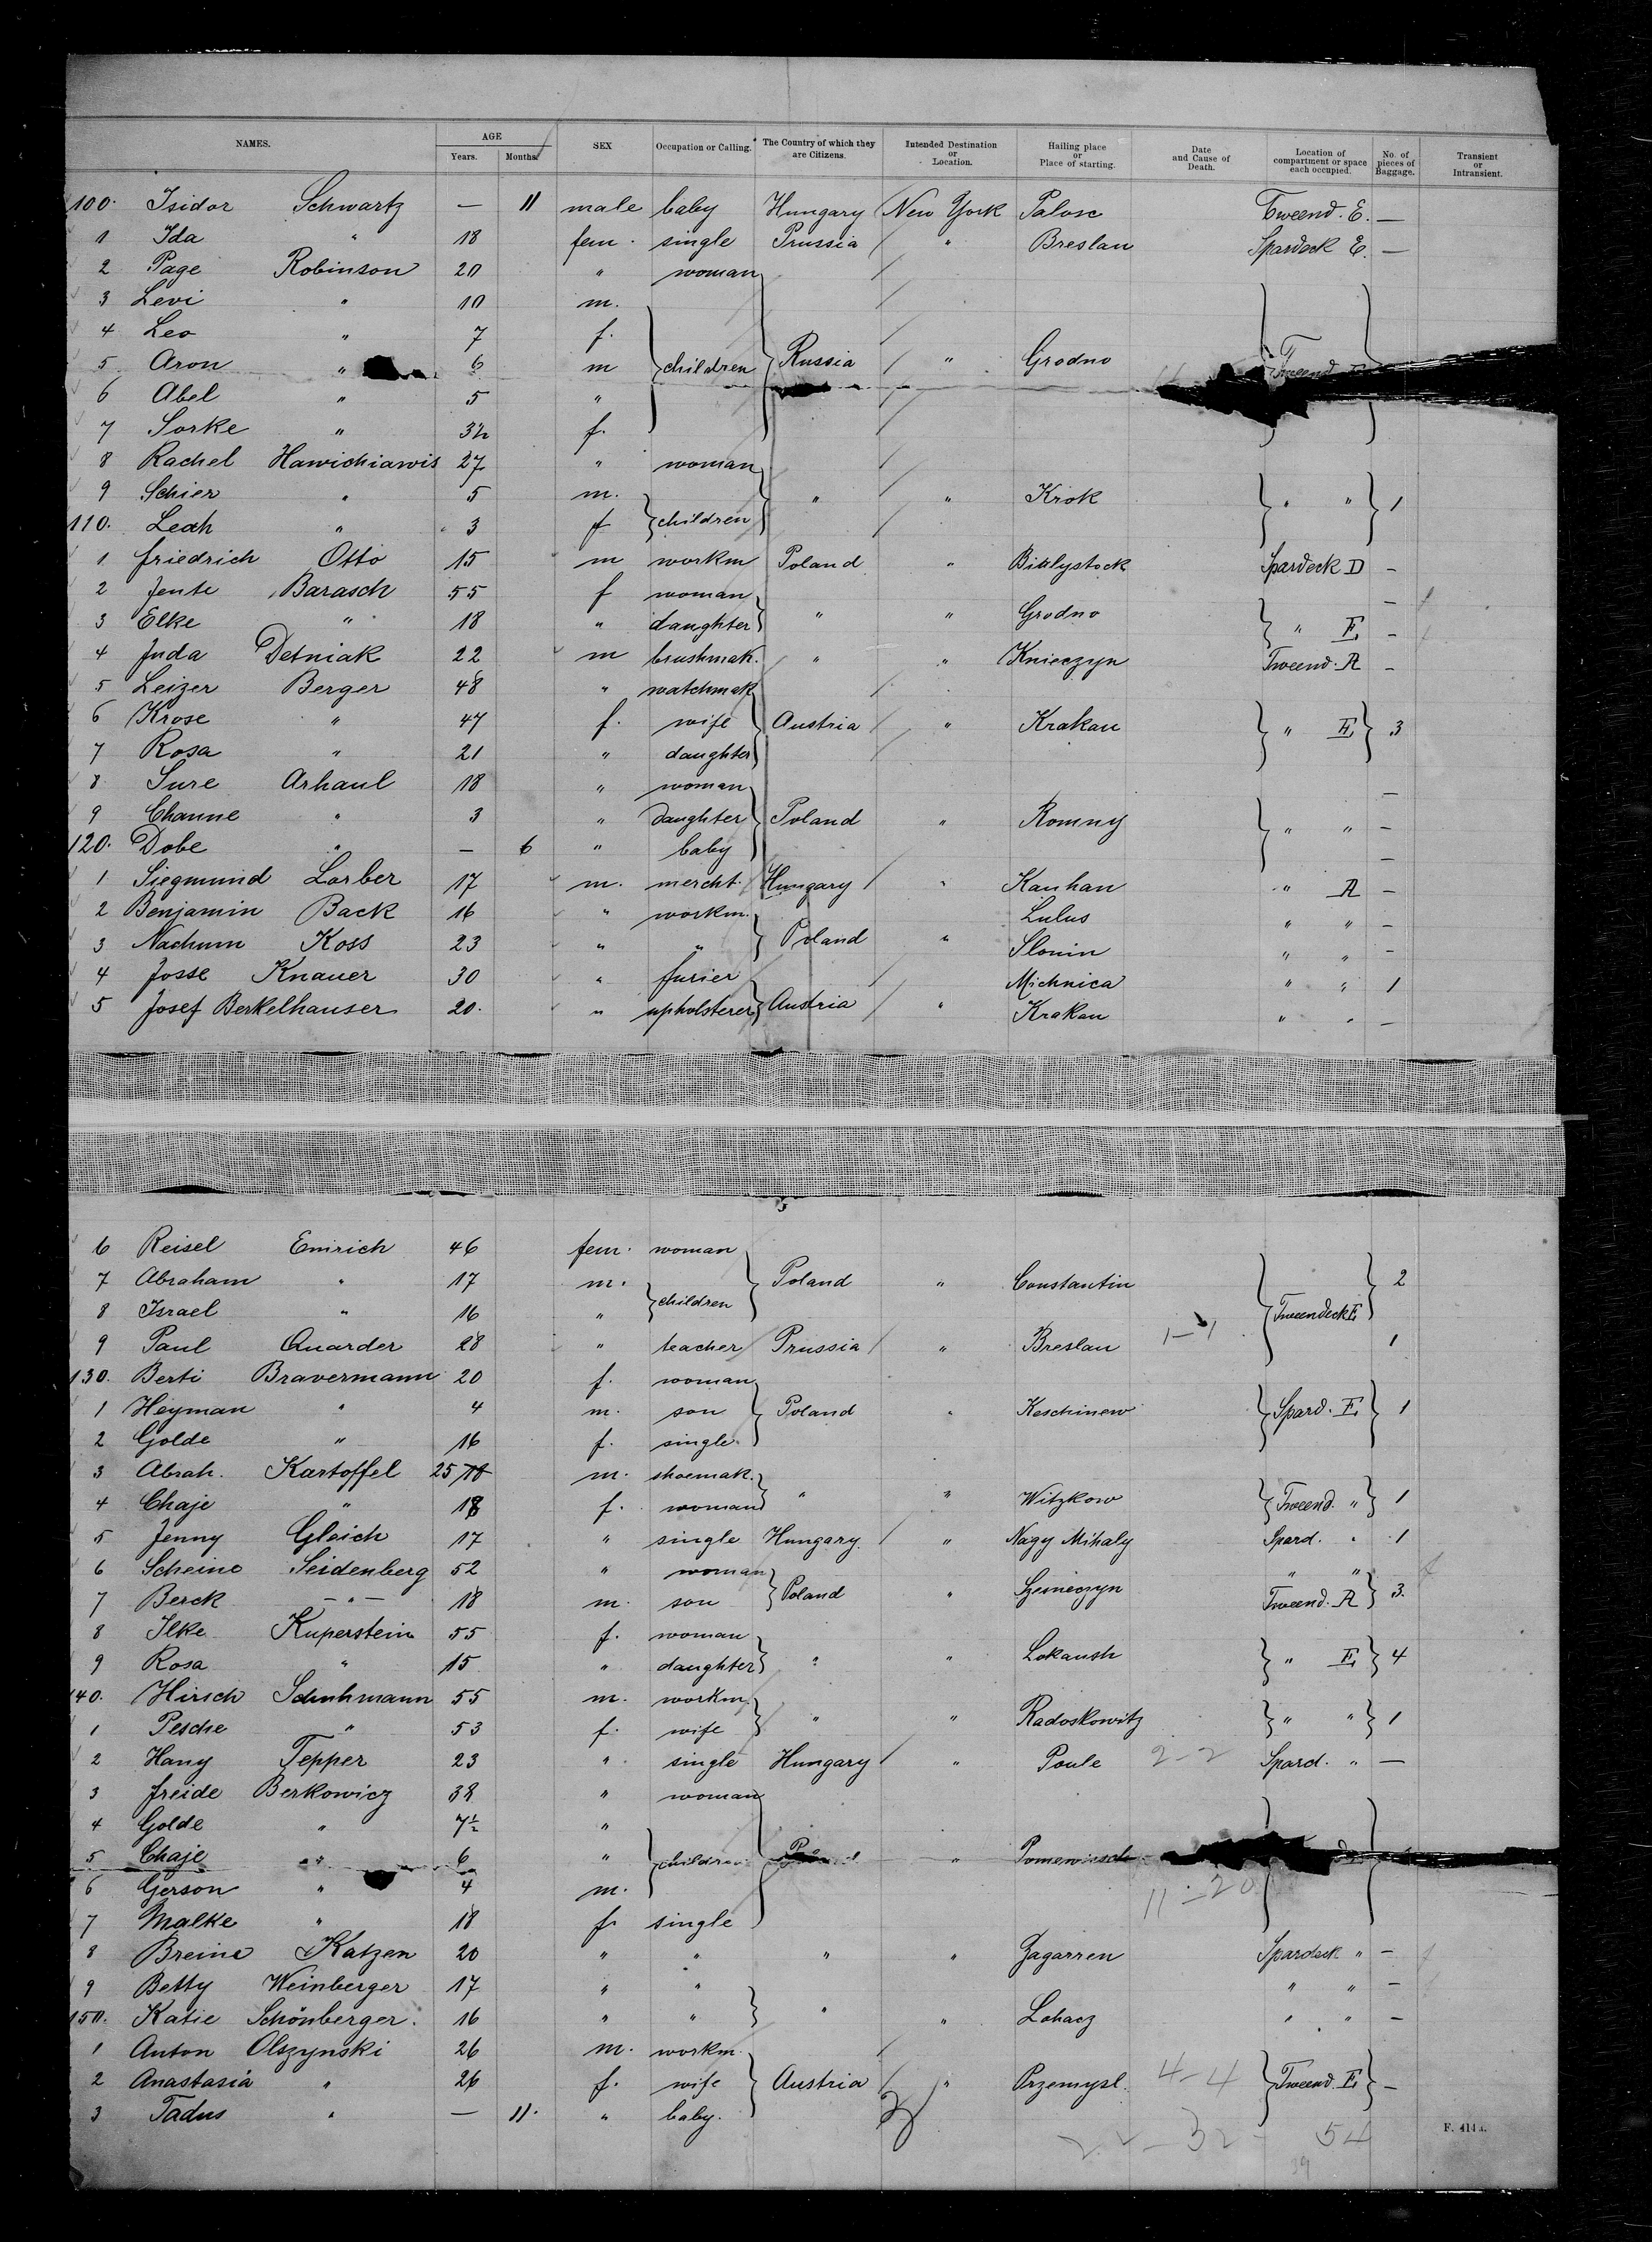 NAMES. AGE Years. Months. SEX Occupation or Calling. The Country of which they are Citizens. Intended Destination or Location. Hailing place or Place of starting. Date and Cause of Death. Location of compartment or space each occupied. No. of pieces of Baggage. Transient or Intransient.
100. Isidor Schwartz — 11 male baby Hungary New York Palosc Tweend. E. —
1 Ida " 18 fem. single Prussia " Breslau Spardeck E. —
2 Page Robinson 20 " woman
3 Levi " 10 m.
4 Leo " 7 f.
5 Aron " 6 m children Russia " Grodno Tweend
6 Abel " 5 "
7 Sorke " 3½ f.
8 Rachel Hawichiawis 27 " woman
9 Schier " 5 m. " " Krok " " 1
110. Leah " 3 f children
1 Friedrich Otto 15 m workm Poland " Bialystock Spardeck D -
2 Jente Barasch 55 f woman -
3 Elke " 18 " daughter " " Grodno " E -
4 Juda Detniak 22 m brushmak. " " Knieczyn Tweend. A -
5 Leizer Berger 48 " watchmak
6 Krose " 47 f. wife Austria " Krakau " E 3
7 Rosa " 21 " daughter
8 Sure Arhaul 18 " woman —
9 Channe " 3 " daughter Poland " Romny " " -
120. Dobe " — 6 " baby —
1 Siegmund Lorber 17 m. mercht. Hungary " Kauhan " A -
2 Benjamin Back 16 " workm. Lulus " " -
3 Nachum Koss 23 " " Poland " Slonin " " -
4 Josse Knauer 30 " furier Michnica " " 1
5 Josef Berkelhauser 20. " upholsterer Austria " Krakau " " —
6 Reisel Emrich 46 fem. woman
7 Abraham " 17 m. Poland " Constantin 2
8 Israel " 16 " children Tweendeck E
9 Paul Quarder 28 " teacher Prussia " Breslau 1-1 1
130. Berti Bravermann 20 f. woman
1 Heyman " 4 m. son Poland " Keschinew Spard. E 1
2 Golde " 16 f. single
3 Abrah. Kartoffel 25 m. shoemak.
4 Chaje " 18 f. woman " " Witzkow Tweend. " 1
5 Jenny Gleich 17 " single Hungary. " Nagy Mihaly Spard. " 1
6 Scheine Seidenberg 52 " woman " "
7 Berck — " — 18 m. son Poland " Szeineczyn Tweend. A 3.
8 Ilke Kuperstein 55 f. woman
9 Rosa " 15 " daughter " " Lokaush " E 4
140. Hirsch Schuhmann 55 m. workm.
1 Pesche " 53 f. wife " " Radoskowitz " " 1
2 Hany Tepper 23 " single Hungary " Poule 2-2 Spard. " —
3 Freide Berkowicz 38 " woman
4 Golde " 7½ "
5 Chaje " 6 " children " Pomewisch
6 Gerson " 4 m. 11-20
7 Malke " 18 f. single
8 Breine Katzen 20 " " " " Zagarren Spardeck " —
9 Betty Weinberger 17 " " " " —
150. Katie Schönberger. 16 " " " " Lohacz " " —
1 Anton Olszynski 26 m. workm.
2 Anastasia " 26 f. wife Austria " Przemysl. 4-4 Tweend. E —
3 Tadus " — 11. " baby.
32 54
39
F. 414 a.